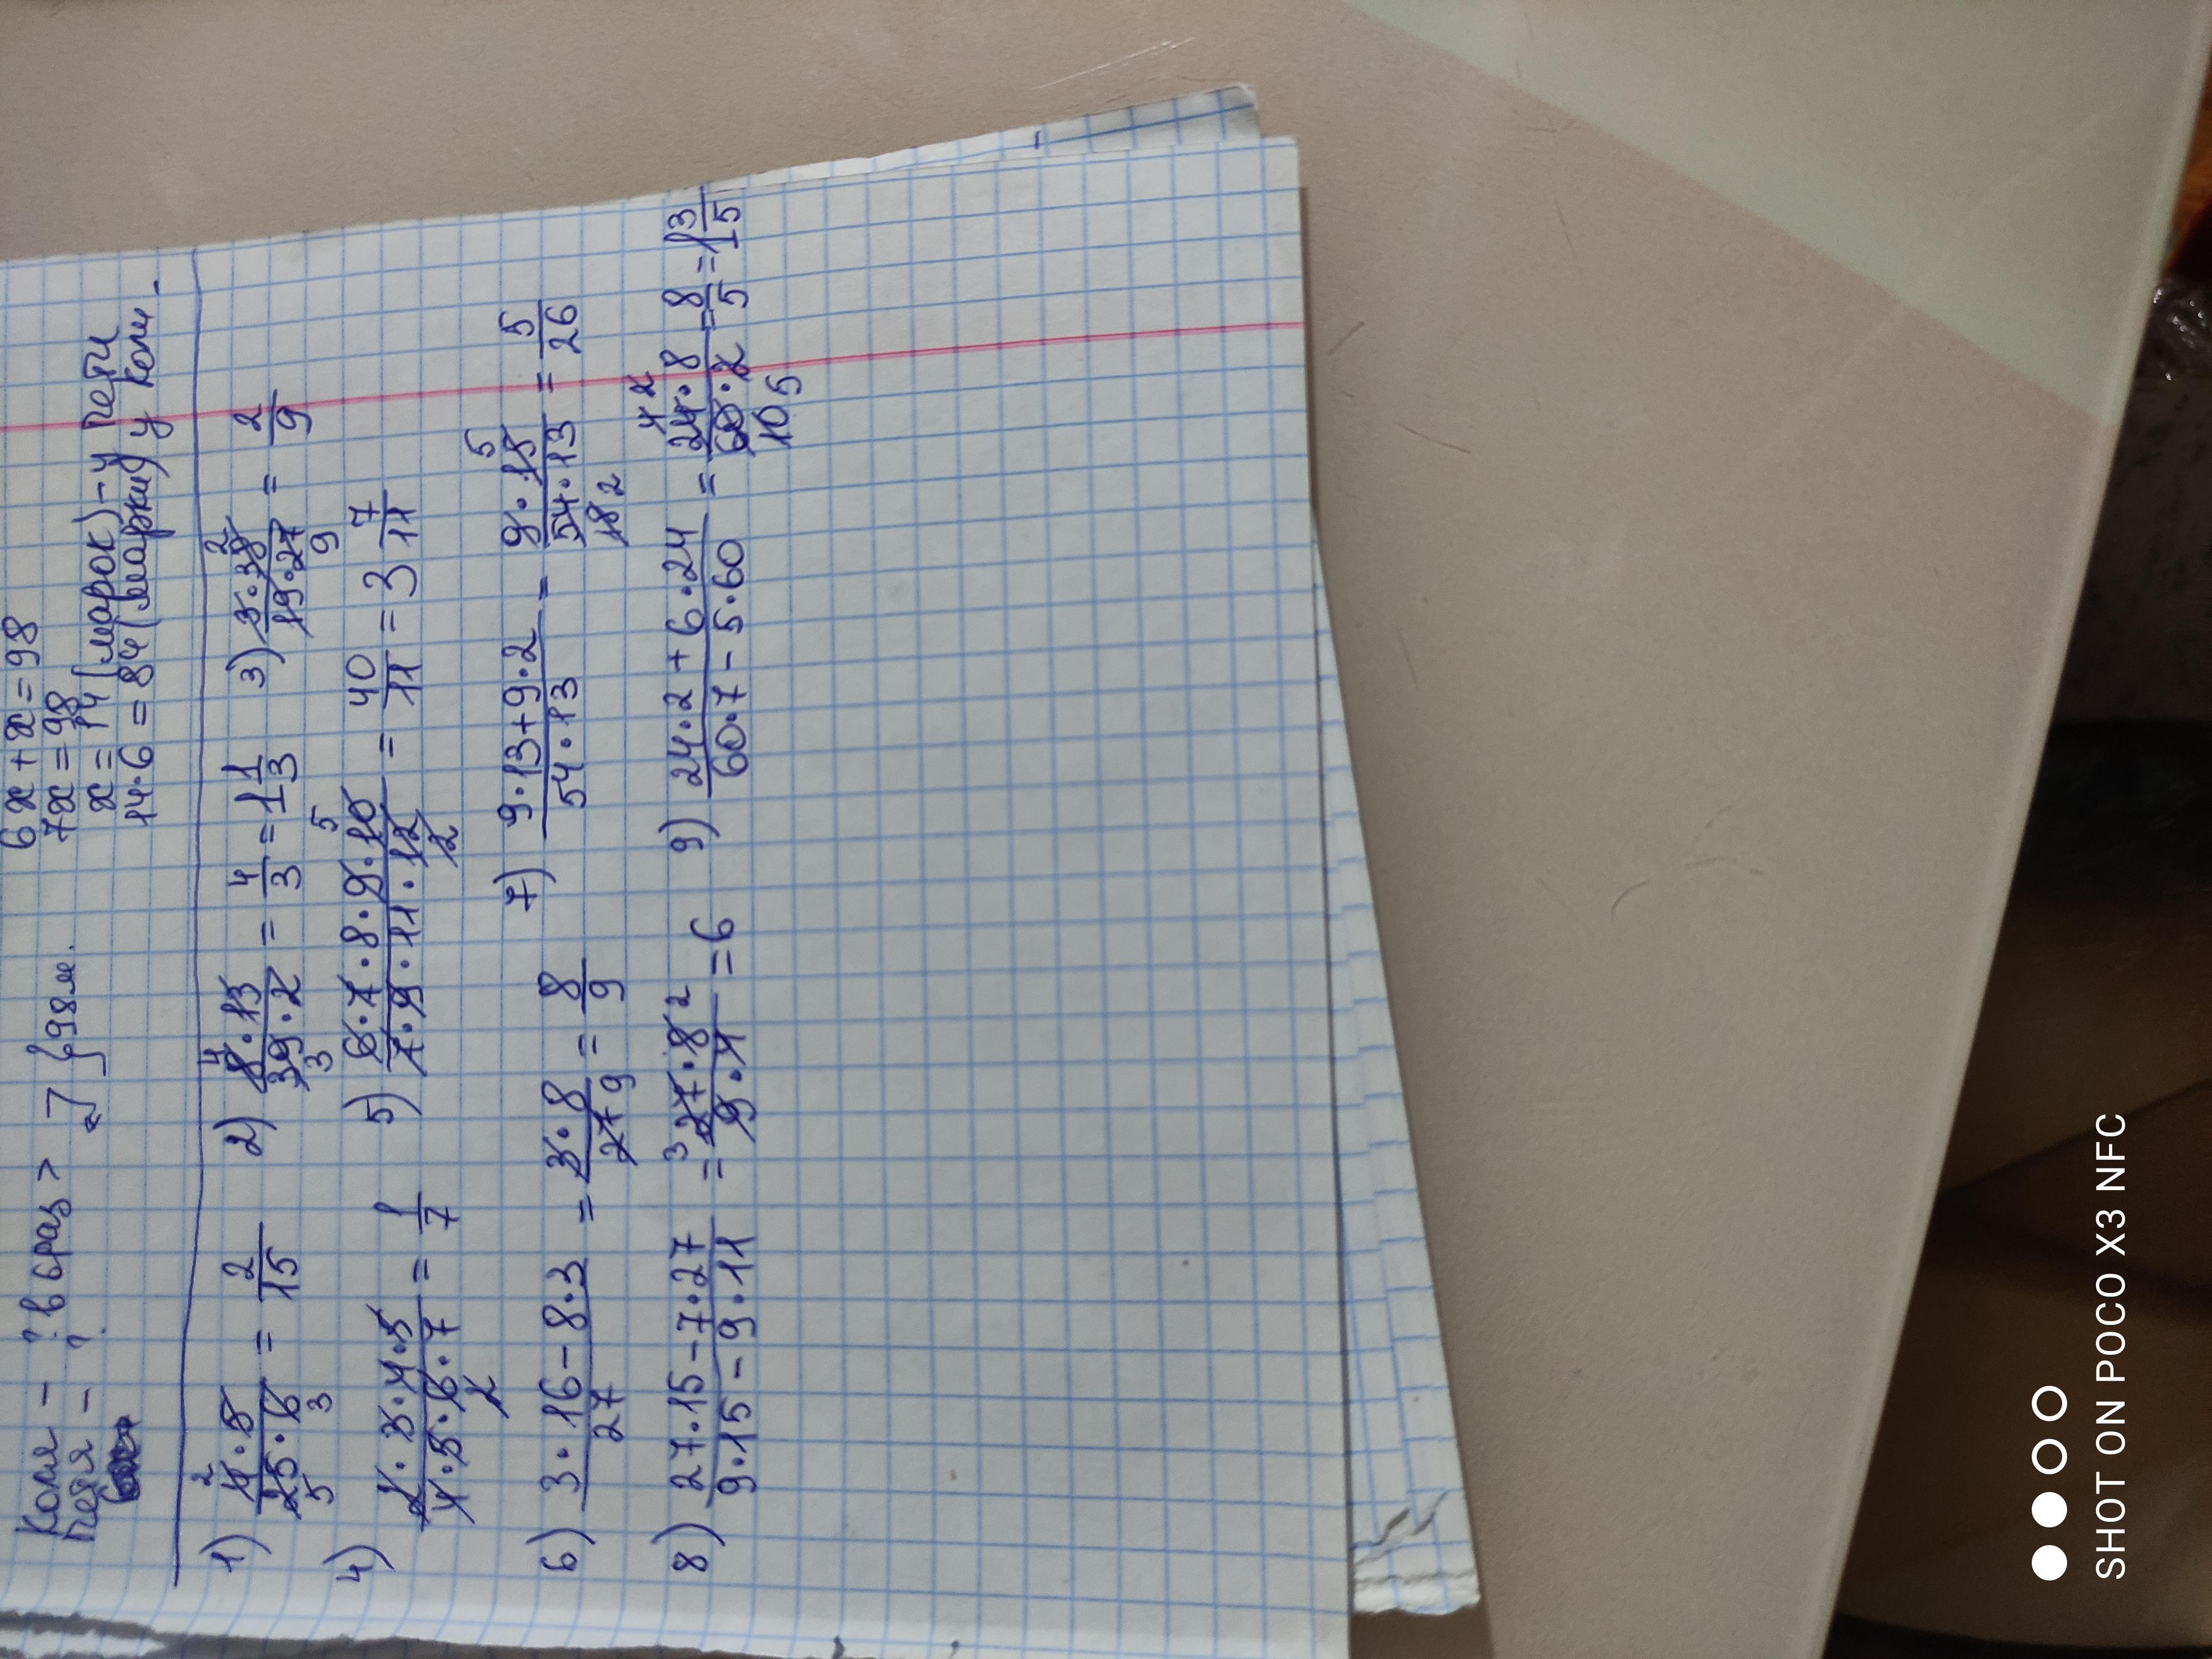 Коля - ? в 6 раз >
Петя - ? } 98 м.
6x + x = 98
7x = 98
x = 14 (марок) - у Пети
14·6 = 84 (марки) у Коли
1) 4·5/25·6 = 2/15 2) 8·13/39·2 = 4/3 = 1 1/3 3) 3·38/19·27 = 2/9
4) 2·3·4·5/4·5·6·7 = 1/7 5) 6·7·8·9·10/7·9·11·12 = 40/11 = 3 7/11
6) 3·16-8·3/27 = 3·8/27 = 8/9 7) 9·13+9·2/54·13 = 9·15/54·13 = 5/26
8) 27·15-7·27/9·15-9·11 = 27·8/9·4 = 6 9) 24·2+6·24/60·7-5·60 = 24·8/60·2 = 8/5 = 1 3/5
SHOT ON POCO X3 NFC